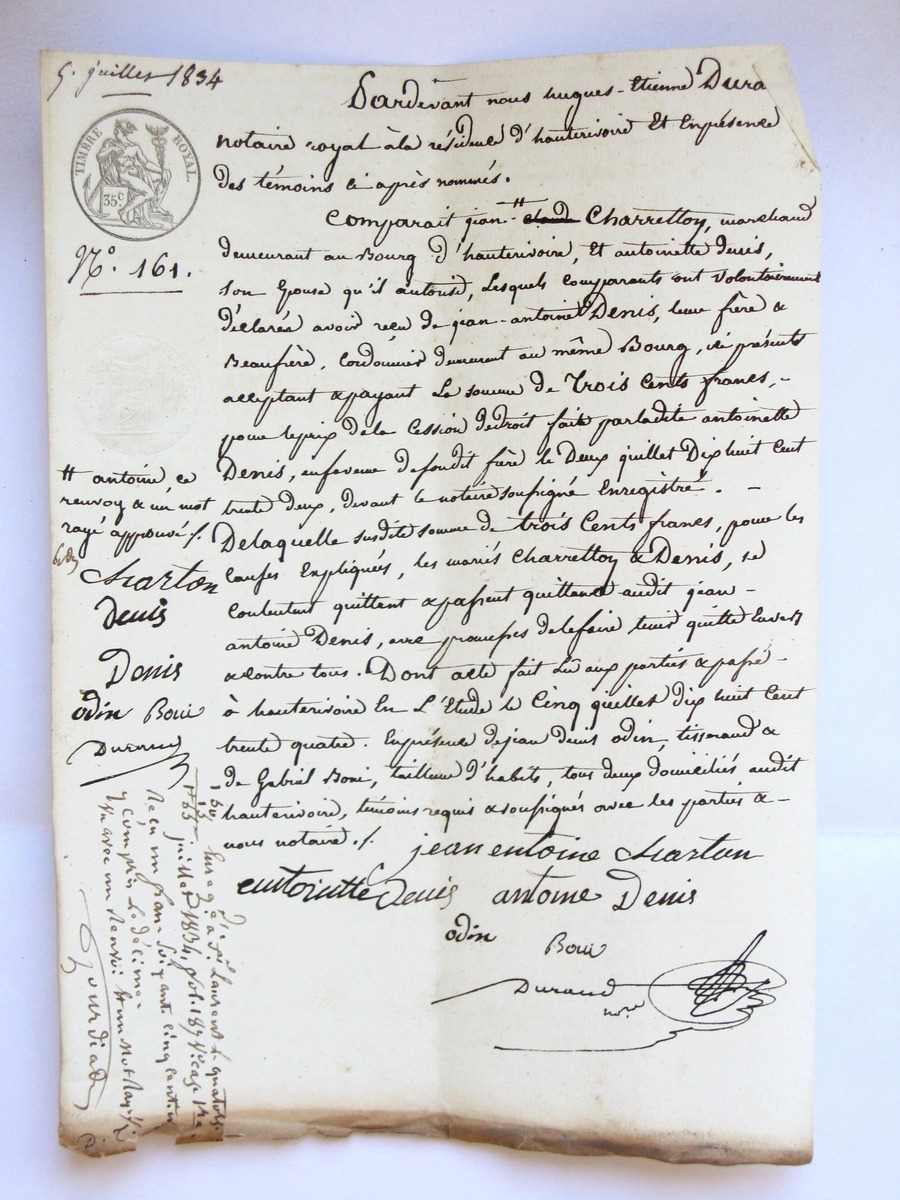 5. juillet 1834
Pardevant nous hugues-Etienne Dura
notaire royal à la résidence d'hauterivoire Et Enprésence
des témoins ci après nommés.
TIMBRE ROYAL.
35c
Comparait jean-# Charretton, marchand
N.o 161.
demeurant au Bourg d'hauterivoire, Et antoinette denis,
son Epouse qu'il autorise, Lesquels Comparants ont volontairement
déclarés avoir reçu de jean-antoine Denis, leur frère &
Beaufrère, Cordonnier demeurant au même Bourg, ici présent
acceptant & payant La somme de Trois Cents francs, -
pour leprix dela Cession dedroit faite parladite antoinette
Denis, enfaveur desondit frère le Deux juillet Dix huit Cent
trente deux, devant le notaire soussigné Enregistré. -
# antoine, ce
renvoy & un mot
rayé approuvé ./.
Delaquelle susdite somme de trois Cents francs, pour les
Causes Expliquées, les mariés Charretton & Denis, se
Contentent quittent & passent quittance audit jean-
antoine Denis, avec promesses delefaire tenir quitte Envers
& contre tous. Dont acte fait Lû aux parties & passé -
à hauterivoire En L'Etude le Cinq juillet dix huit Cent
trente quatre. Enprésence dejean denis odin, tisserand &
de Gabriel Boni, tailleur d'habits, tous deux domiciliés audit
hauterivoire, témoins requis & soussignés avec les parties & -
nous notaire ./.
Charton
Denis
Denis
odin Boni
Durand
jean entoine Charton
entoinette Denis antoine Denis
odin Boni
Durand
nore
Enregé à St Laurent le quatorze
juillet 1834, fol. 187 Vo case 1re
Reçu un franc soixante cinq centimes
y compris Le décime
avec un Renvoi & un mot Rayé
Gourdiat